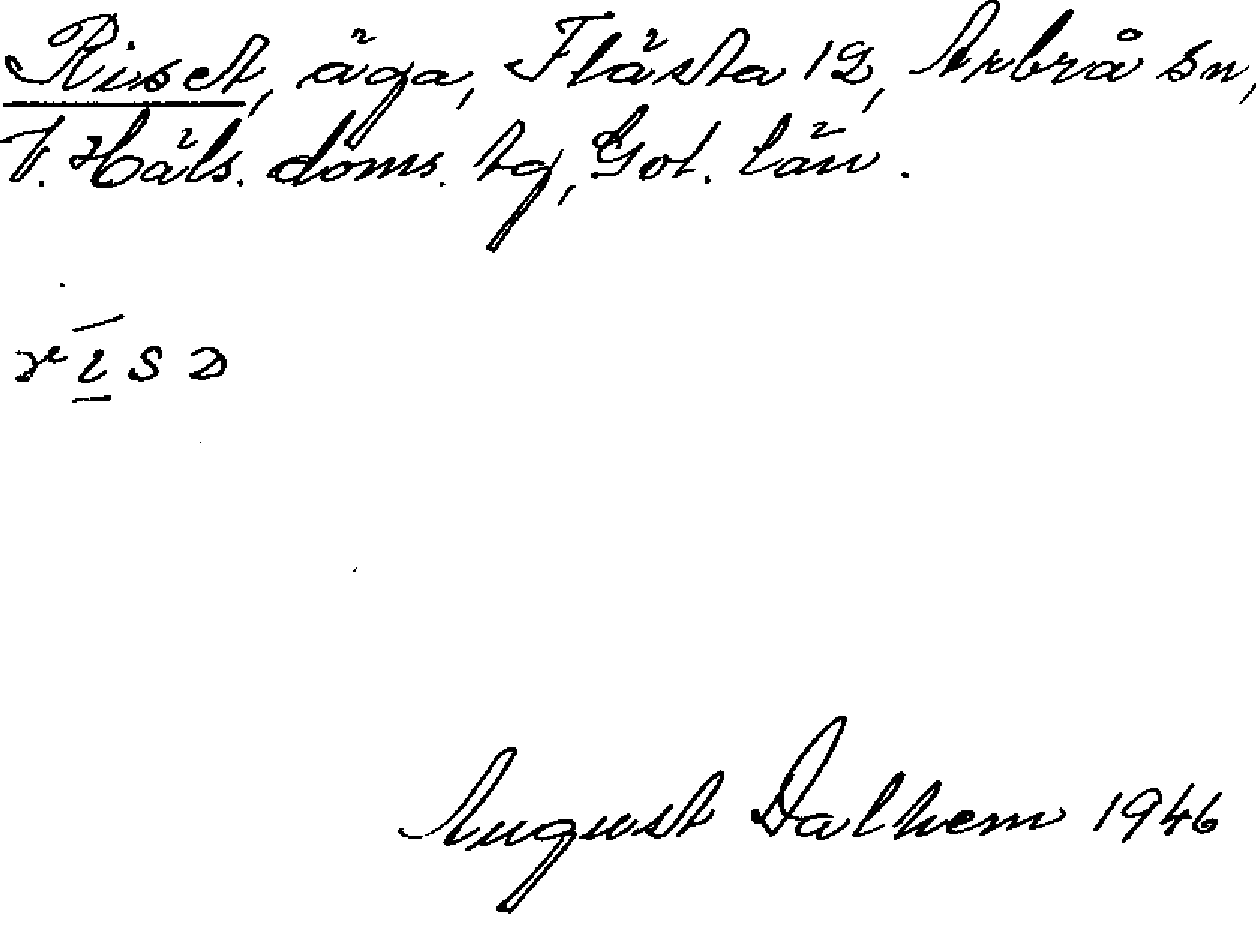 Riset, äga, Flästa 12, Arbrå sn,
V. Häls. doms. tg, Gol. län.
August Dalhem 1946